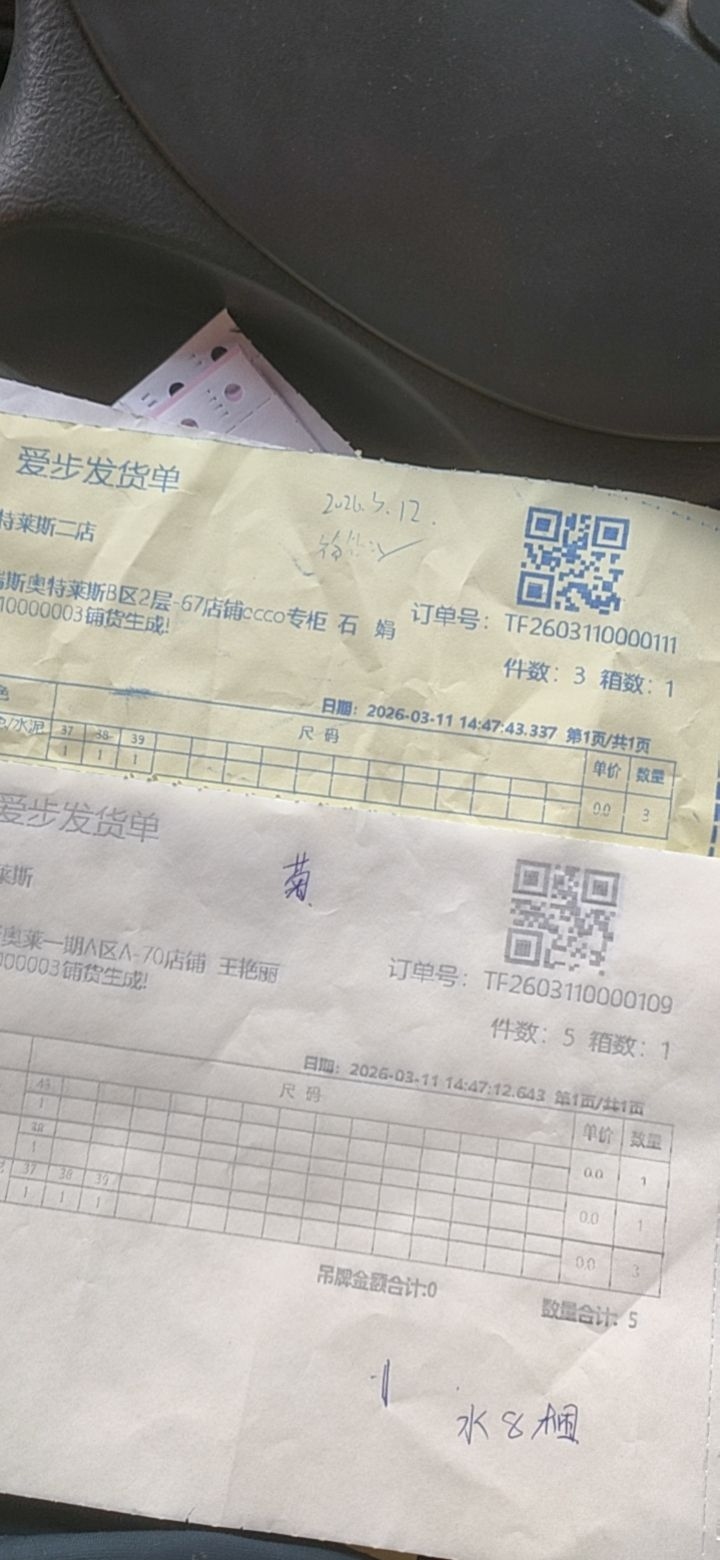 爱步发货单
2026.3.12.
特莱斯二店
斯奥特莱斯B区2层-67店铺ecco专柜 石 娟
订单号: TF2603110000111
10000003铺货生成!
件数: 3 箱数: 1
日期: 2026-03-11 14:47:43.337 第1页/共1页
色
尺 码
单价 数量
/水泥 37 38 39
1 1 1
0.0 3
爱步发货单
菊
莱斯
奥莱一期A区A-70店铺 王艳丽
订单号: TF2603110000109
000003铺货生成!
件数: 5 箱数: 1
日期: 2026-03-11 14:47:12.643 第1页/共1页
尺 码
单价 数量
43
1
0.0 1
38
1
0.0 1
37 38 39
1 1 1
0.0 3
吊牌金额合计:0
数量合计: 5
水 8 捆